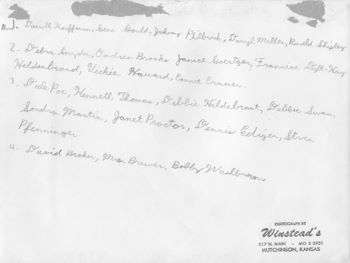 1. Darrell Kauffman, Gene Gould, Johnny Philbrick, Daryl Miller, Ronald Shipley
2. Debra Snyder, Andrea Brooks, Janice Goertzen, Francine Kay
Heldenbrand, Vickie Howard, Connie
3. Dale Poe, Kenneth Thomas, Debbie Hildebrant, Debbie Swan
Sandra Martin, Janet Proctor, Dennis Ediger, Steven
Pfenninger
4. David Broker, Mrs. Brewer, Bobby Washburn
PHOTOGRAPH BY
Winstead's
217 N. MAIN • MO 2-3931
HUTCHINSON, KANSAS